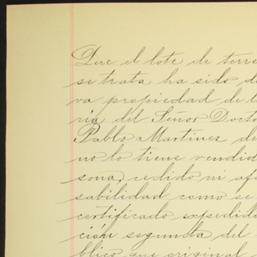 Que el lote de terre
se trata ha sido d
va propiedad de l
ria del Señor Docto
Pablo Martinez de
no lo tiene vendid
sona, cedido ni af
sabilidad como se
certificado expedid
ción segunda del
blico que original